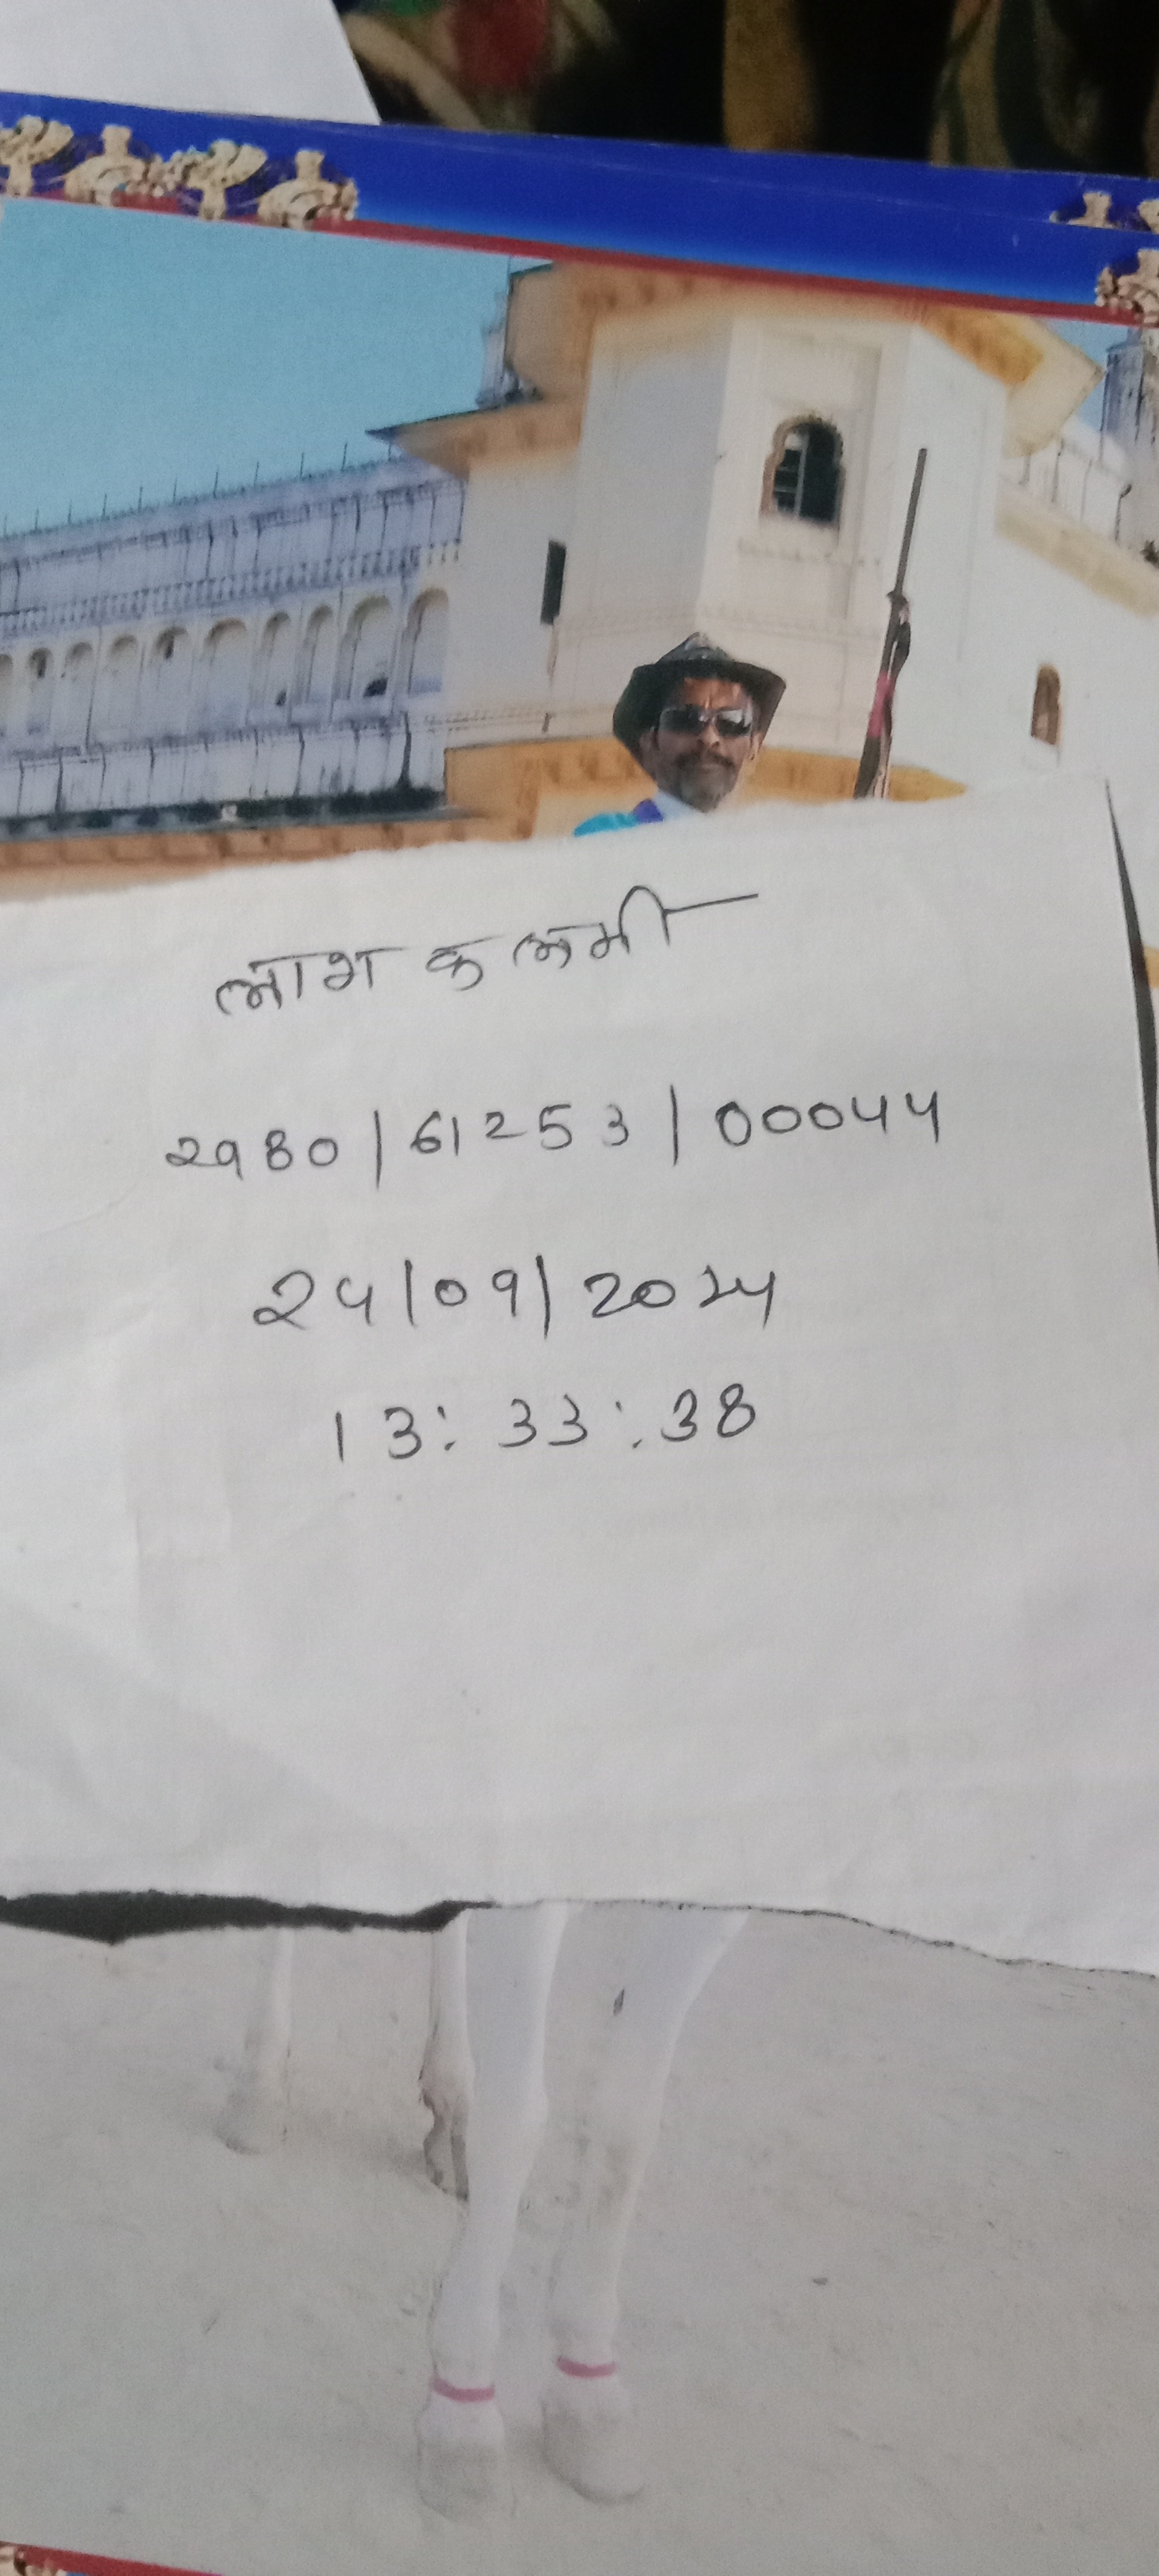 2980/61253/00044
24/09/2024
13:33:38